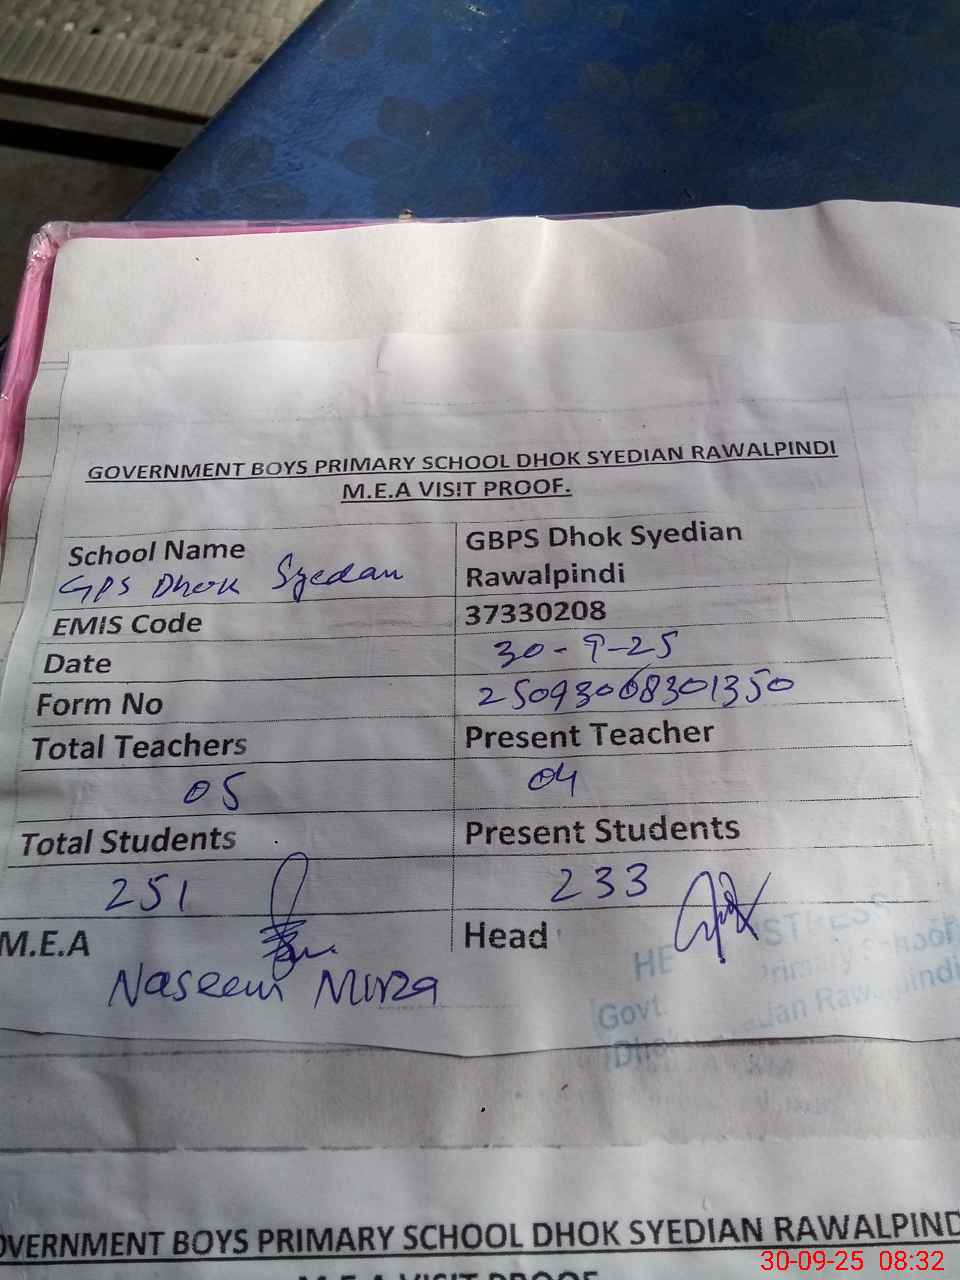 GOVERNMENT BOYS PRIMARY SCHOOL DHOK SYEDIAN RAWALPINDI
M.E.A VISIT PROOF.
School Name
GPS Dhok Syedan
GBPS Dhok Syedian
Rawalpindi
EMIS Code 37330208
Date 30-9-25
Form No 25093068301350
Total Teachers Present Teacher
05 04
Total Students Present Students
251 233
M.E.A Head
Naseem Mirza
Govt.
OVERNMENT BOYS PRIMARY SCHOOL DHOK SYEDIAN RAWALPIND
M.E.A VISIT PROOF
30-09-25 08:32